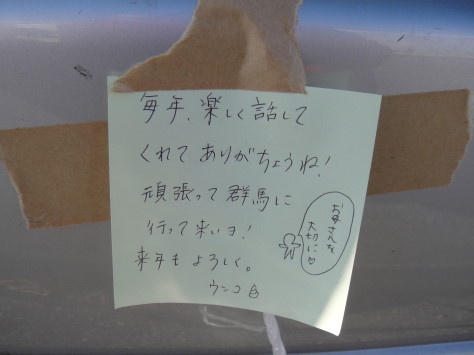 毎年、楽しく話して
くれてありがちょうね!
頑張って群馬に
行って来いヨ!
来年もよろしく。
ウンコ
お母さんを
大切に♡